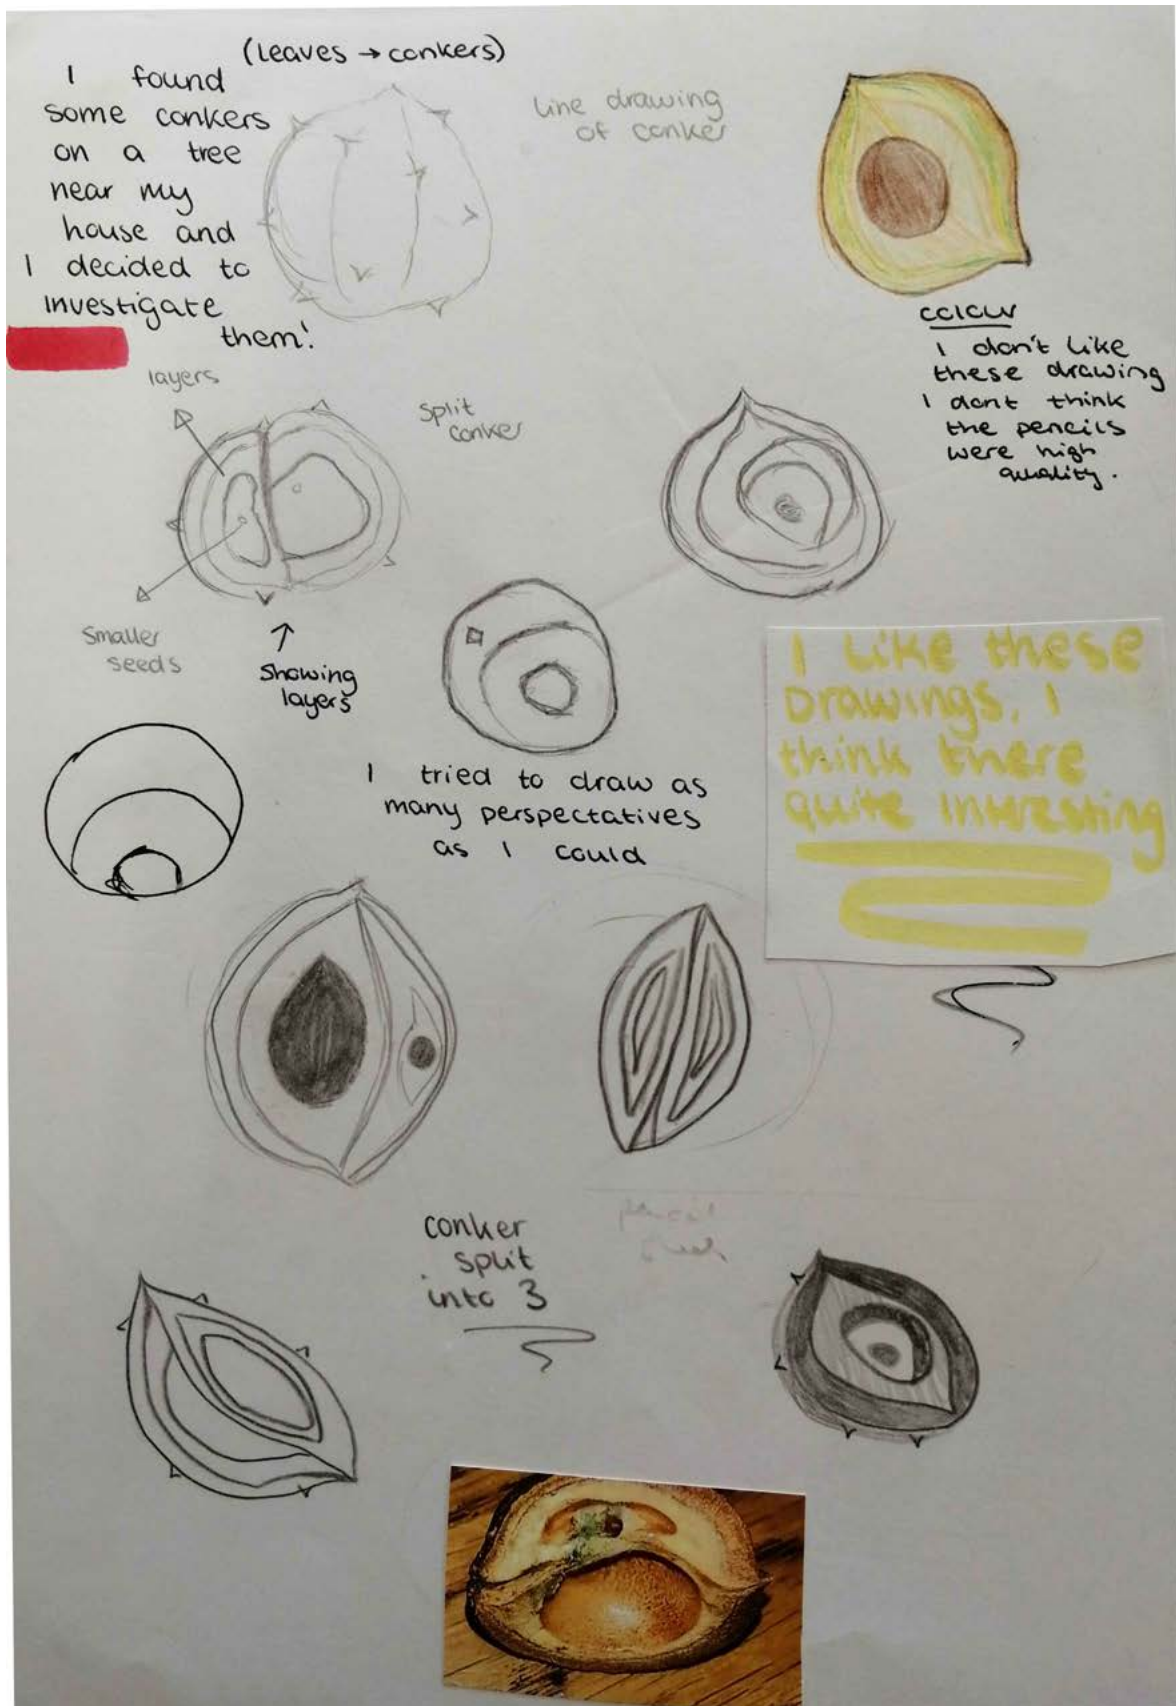 (leaves → conkers)
I found
some conkers
on a tree
near my
house and
I decided to
investigate
them!
line drawing
of conker
colour
I don't like
these drawing
I dont think
the pencils
were high
quality.
layers
split
conker
smaller
seeds
↑
showing
layers
I tried to draw as
many perspectatives
as I could
I like these
Drawings, I
think there
quite interesting
conker
split
into 3
pencil